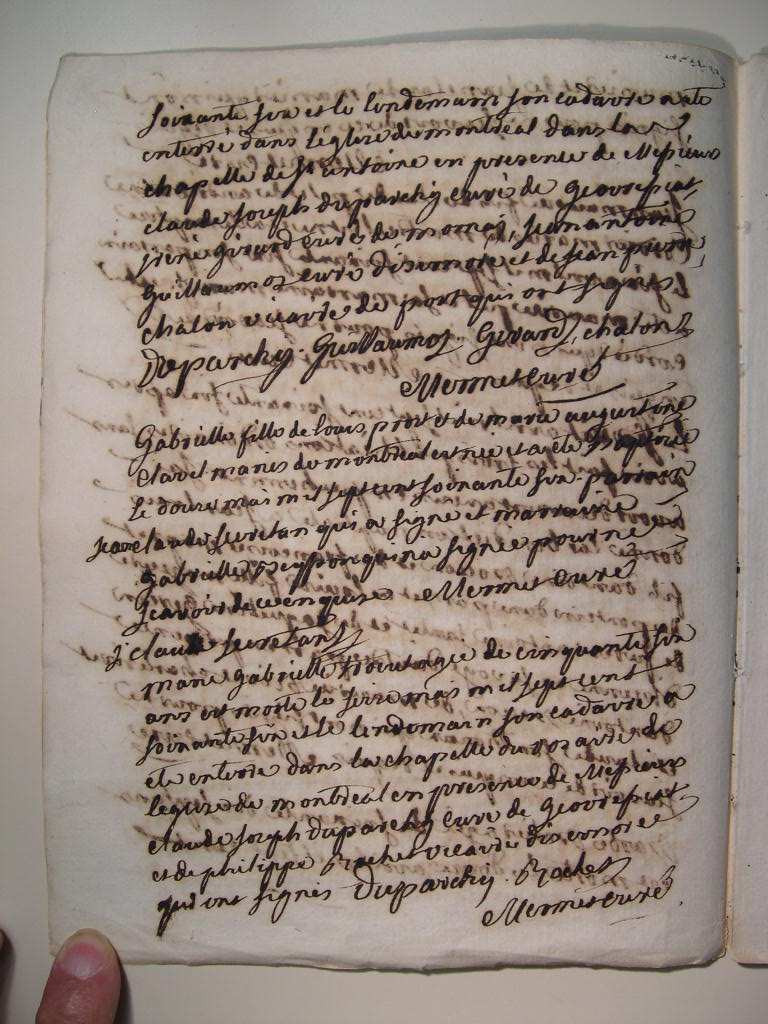 soixante six et le lendemain son cadavre a ete
enterré dans l'eglise de montreal dans la
chapelle de St antoine en presence de Messieurs
claude Joseph duparchy curé de geovressiat
girard curé de Jean antoine
Guillaumot curé d'isernore et de Jean pierre
chalon vicaire de port qui ont signés
Duparchy. Guillaumot. Girard, chalon
Mermet curé
Gabrielle fille de louis prost et de marie augustine
clavel mariés de montreal est née et a ete baptisée
le douze mai mil sept cent soixante six. parrain
Jean claude secretan qui a signé et marraine
Gabrielle qui n'a signée pour ne
scavoir de ce enquise Mermet curé
J claude secretant
marie Gabrielle agée de cinquante six
ans est morte le seize mai mil sept cent
soixante six et le lendemain son cadavre a
ete enterré dans la chapelle du rosaire de
leglise de montreal en presence de Messieurs
claude Joseph duparchy curé de geovressiat
et de philippe Rochet vicaire disernore
qui ont signés Duparchy. Rochet
Mermet curé